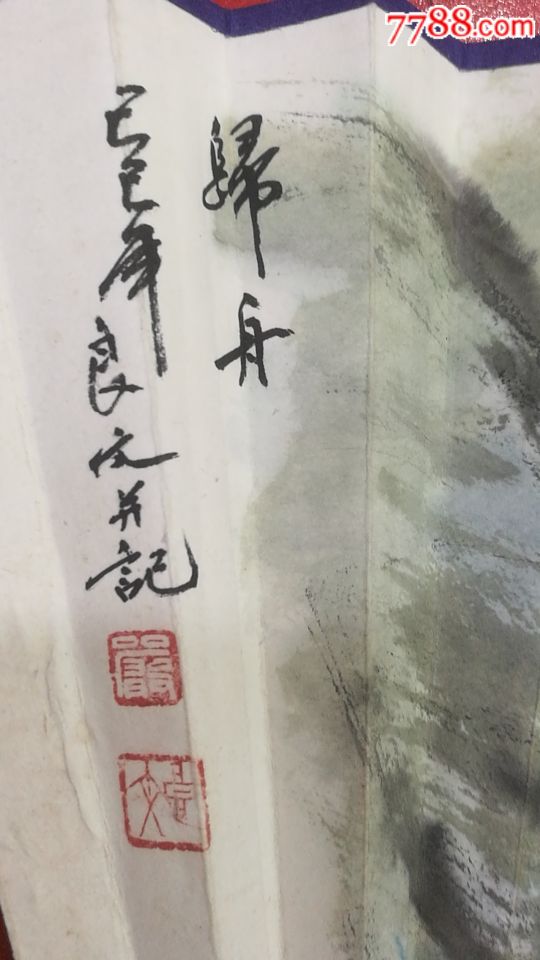 7788.com
歸舟
己巳年良文并記
嚴
良文